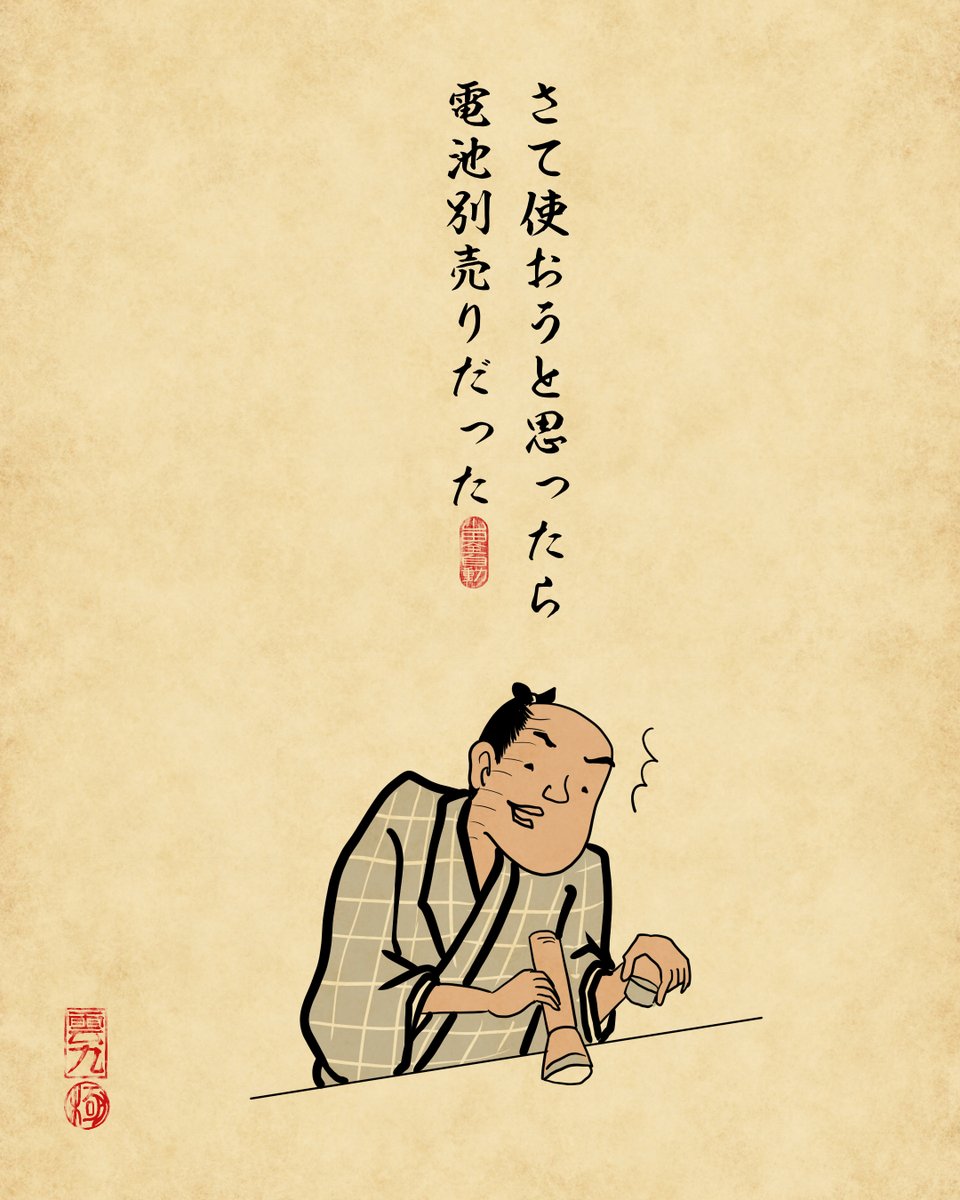 さて使おうと思ったら
電池別売りだった